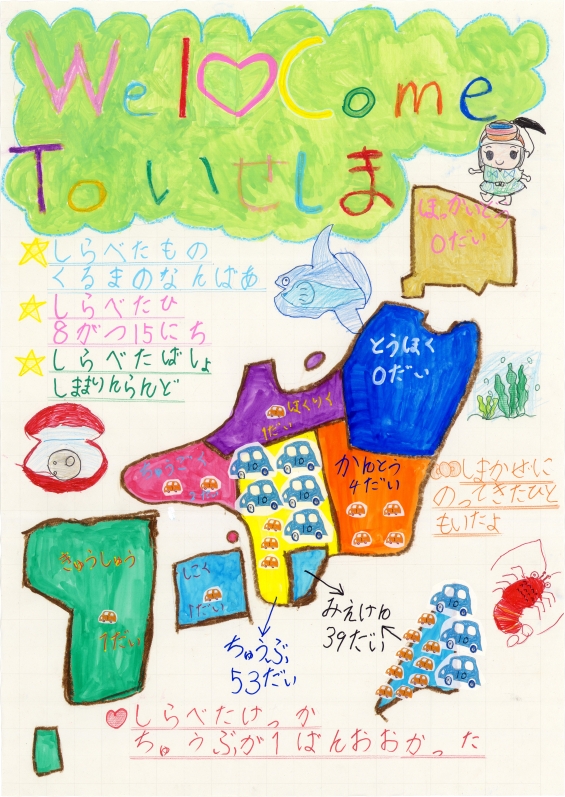 Wel Come
To いせしま
ほっかいどう
0だい
しらべたもの
くるまのなんばあ
しらべたひ
8がつ15にち
しらべたばしょ
しまりんらんど
とうほく
0だい
ほくりく
1だい
ちゅうごく
かんとう
4だい
しまかぜに
のってきたひと
もいたよ
きゅうしゅう
1だい
しこく
1だい
みえけん
39だい
ちゅうぶ
53だい
10
10
10
10
10
10
10
10
10
しらべたけっか
ちゅうぶが1ばんおおかった